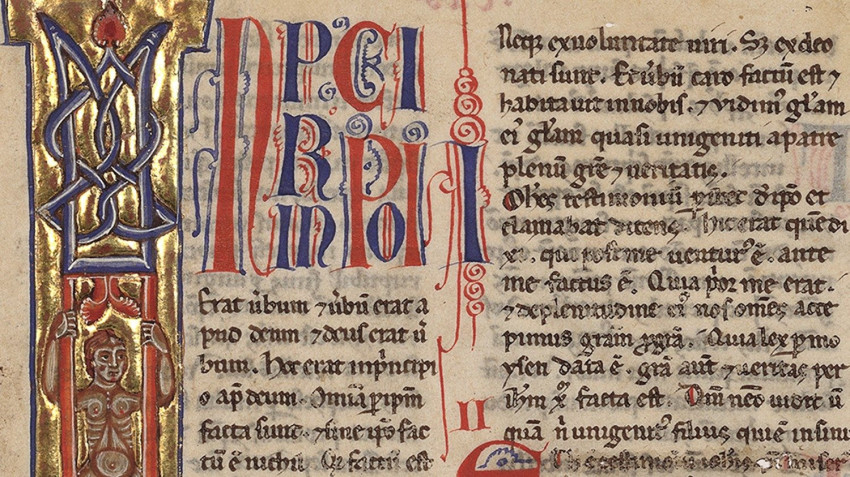 N PRIN CIPIO
Erat ūbum ⁊ ūbū erat a
pud deum ⁊ deus erat ū
bum. Hoc erat inpͥncipi
o apͩ deum. Omīa ꝑ ipm̄
facta sunt. ⁊ sine ipͦo fac
tū ē nichil. Qͦ factū est
Neqꝫ exuoluntate uiri. Sꝫ exdeo
nati sunt. Et ūbū caro factū est ⁊
habitauit innobis. ⁊ vidimꝰ gl̄am
eiꝰ gl̄am quasi unigeniti apatre
plenū grē ⁊ ueritatis.
Ioh̄es testimoniū ꝑhibet dͤ ipͦo et
clamabat dicens. Hic erat quē di
xi. qui post me uenturꝰ ē. ante
me factus ē. Quia pͥor me erat.
⁊ de plenitudine eiꝰ nos om̄es acce
pimus grām ꝓ grā. Quia lex ꝑ mo
ysen data ē. grā aūt ⁊ ueritas per
ih̄m xp̄m facta est. Dm̄ nemo uidit ū
quā ñ unigenitꝰ filius qui ē insinu
II